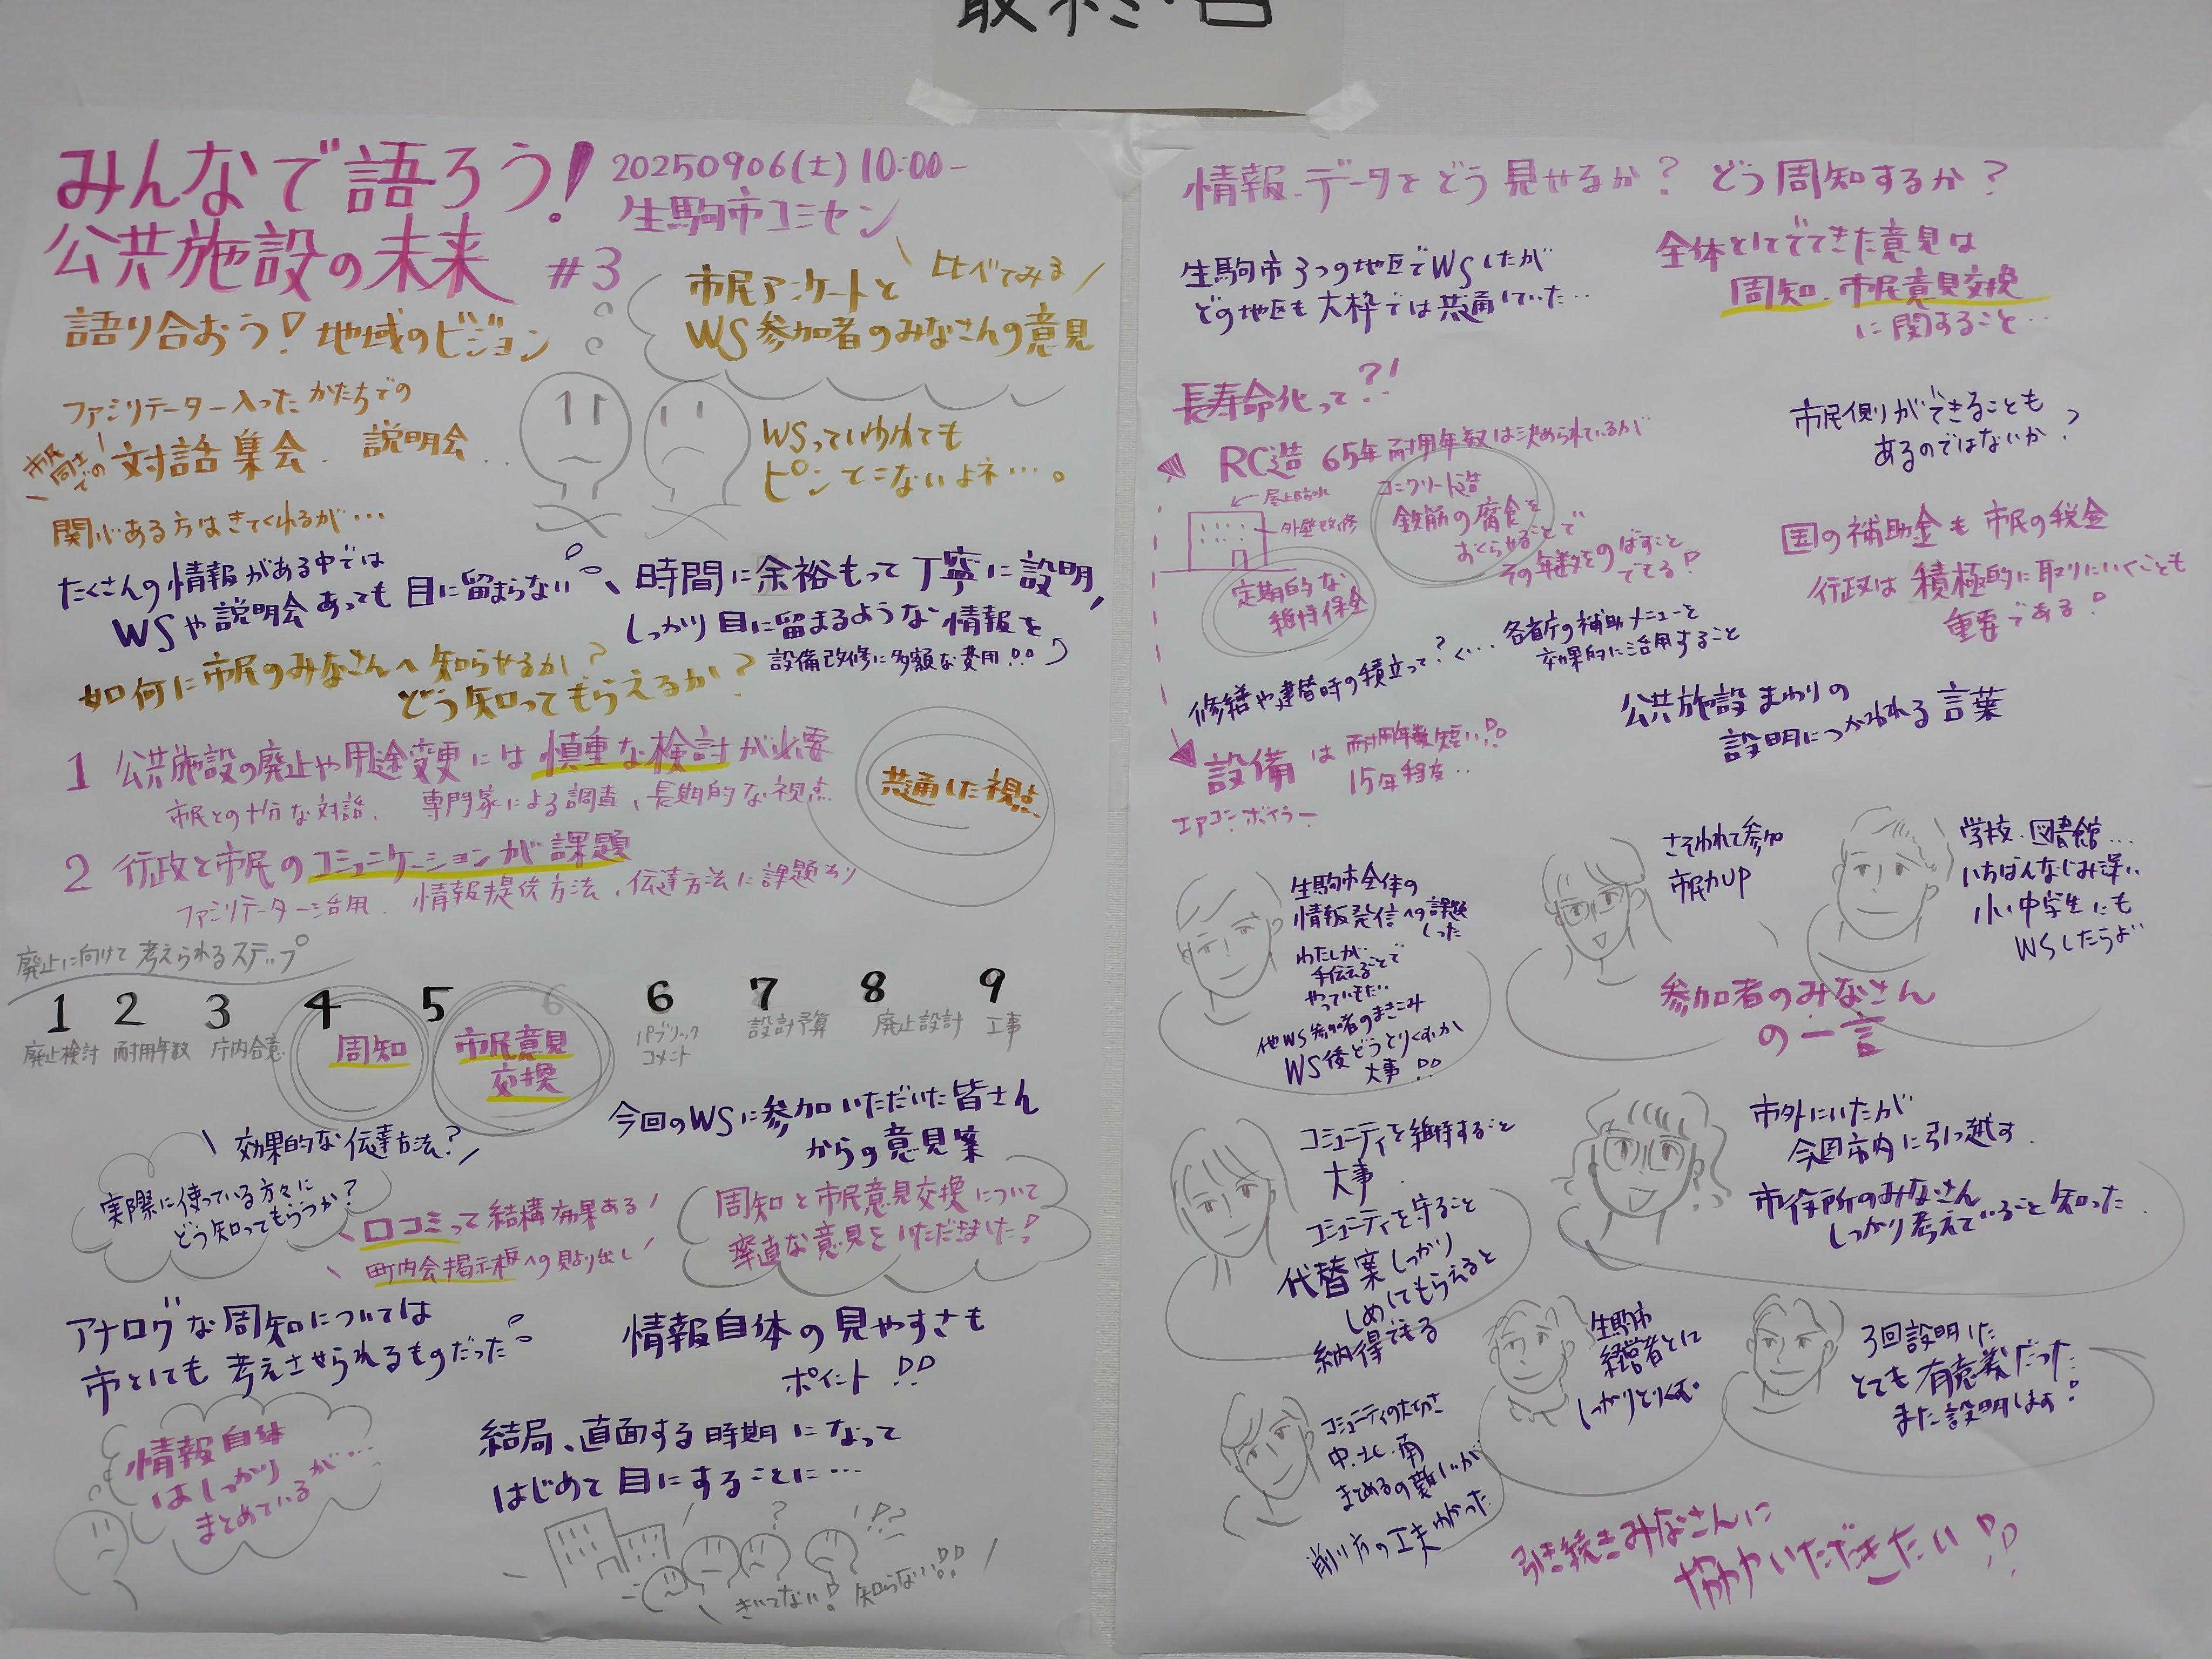 みんなで語ろう!
公共施設の未来 #3
20250906(土)10:00-
生駒市コミセン
語り合おう!地域のビジョン
比べてみる
市民アンケートと
WS参加者のみなさんの意見
ファシリテーター入ったかたちでの
市民同士での
対話集会、説明会…
WSっていわれても
ピンとこないよネ…。
関心ある方はきてくれるが…
たくさんの情報がある中では
WSや説明会あっても目に留まらない
時間に余裕もって丁寧に説明
しっかり目に留まるような情報を
設備改修に多額な費用!!
如何に市民のみなさんへ知らせるか?
どう知ってもらえるか?
1 公共施設の廃止や用途変更には慎重な検討が必要
市民との十分な対話、専門家による調査、長期的な視点
共通した視点
2 行政と市民のコミュニケーションが課題
ファシリテーター活用、情報提供方法、伝達方法に課題あり
廃止に向けて考えられるステップ
1 2 3 4 5 6 7 8 9
廃止検討 耐用年数 庁内合意 周知 市民意見
交換
パブリック
コメント
設計予算 廃止設計 工事
今回のWSに参加いただいた皆さん
からの意見案
効果的な伝達方法?
実際に使っている方々に
どう知ってもらうか?
口コミって結構効果ある
町内会掲示板への貼り出し
周知と市民意見交換について
率直な意見をいただきました!
アナログな周知については
市としても考えさせられるものだった
情報自体の見やすさも
ポイント!!
情報自体
はしっかり
まとめているが…
結局、直面する時期になって
はじめて目にすることに…
きいてない! 知らない!!
情報、データをどう見せるか?どう周知するか?
生駒市3つの地区でWSしたが
どの地区も大枠では共通していた…
全体としてでてきた意見は
周知、市民意見交換
に関すること…
長寿命化って?!
RC造 65年耐用年数は決められているが
屋上防水
外壁改修
コンクリート造
鉄筋の腐食を
おくらせることで
その年数をのばすこと
できる!
定期的な
維持保全
市民側ができることも
あるのではないか?
国の補助金も市民の税金
行政は積極的に取りにいくことも
重要である!
修繕や建替時の積立って?
各省庁の補助メニューを
効果的に活用すること
公共施設まわりの
説明につかわれる言葉
設備は耐用年数短い!!
15年程度…
エアコン・ボイラー
生駒市全体の
情報発信への課題
しった
わたしが
手伝えることで
やっていきたい
他WS参加者のまきこみ
WS後どうとりくむか
大事!!
さそわれて参加
市民力UP
学校、図書館…
いちばんなじみ深い
小・中学生にも
WSしたらよい
参加者のみなさん
の一言
コミュニティを維持すること
大事
コミュニティを守ること
代替案しっかり
しめしてもらえると
納得できる
市外にいたが
今回市内に引っ越す
市役所のみなさん
しっかり考えていること知った
生駒市
経営者として
しっかりとりくむ
3回説明した
とても有意義だった
また説明します!
コミュニティの大切さ
中、北、南
まとめるの難しいが
削り方の工夫 わかった
引き続きみなさんに
協力いただきたい!!